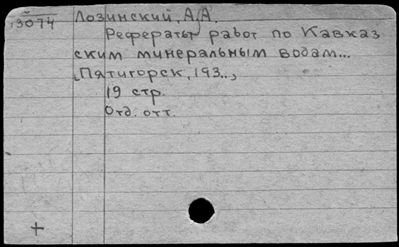 13074 Лозинский, А.А.
Рефераты работ по Кавказ
ским минеральным водам...
Пятигорск, 193..,
19 стр.
Отд. отт.
+